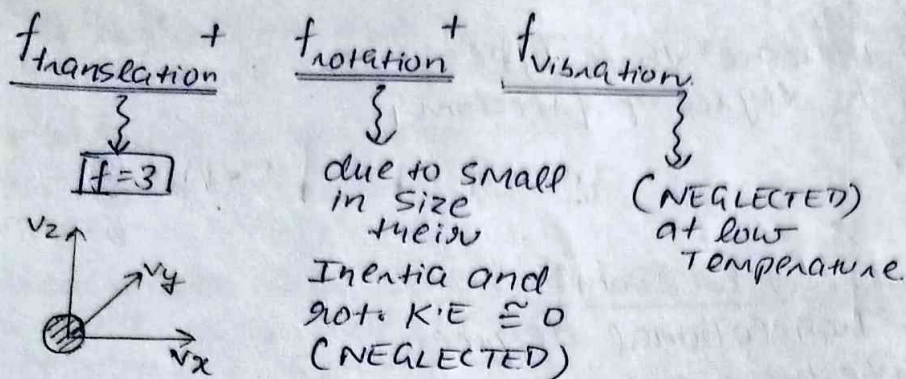 f translation + f rotation + f vibration.
f=3
due to small
in size
their
Inertia and
rot. K.E ≅ 0
(NEGLECTED)
(NEGLECTED)
at low
Temperature.
Vz
Vy
Vx